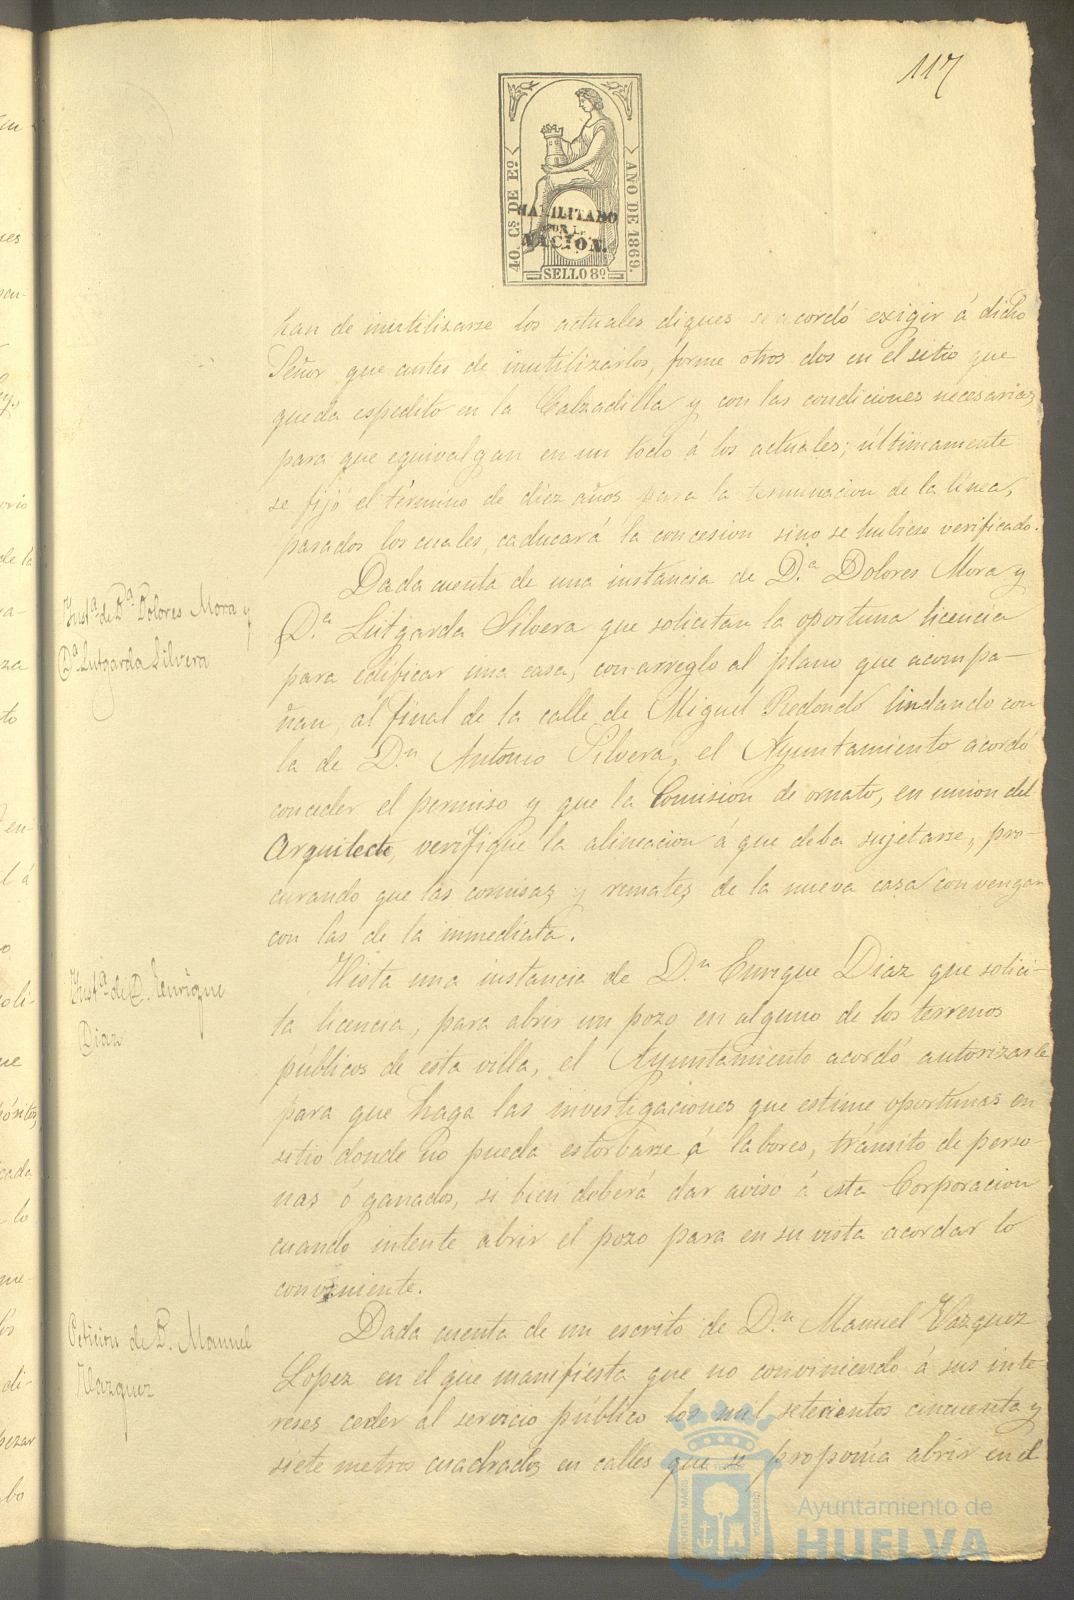 117
40. Cs DE Eo.
AÑO DE 1869.
HABILITADO
POR LA
NACION.
SELLO 8º
han de inutilizarse los actuales diques se acordó exigir á dicho
Señor que antes de inutilizarlos, forme otros dos en el sitio que
queda espedito en la Calzadilla y con las condiciones necesarias
para que equivalgan en un todo á los actuales; últimamente
se fijó el término de diez años para la terminacion de la línea,
pasados los cuales, caducará la concesion sino se hubiese verificado.
Instª de Dª Dolores Mora y
Dª Lutgarda Silvera
Dada cuenta de una instancia de D.ª Dolores Mora y
D.ª Lutgarda Silvera que solicitan la oportuna licencia
para edificar una casa, con arreglo al plano que acompa-
ñan, al final de la calle de Miguel Redondo lindando con
la de D.n Antonio Silvera, el Ayuntamiento acordó
conceder el permiso y que la Comision de ornato, en union del
Arquitecto, verifique la alineacion á que deba sujetarse, pro-
curando que las cornisas y remates de la nueva casa convengan
con las de la inmediata.
Instª de D. Enrique
Diaz
Vista una instancia de D.n Enrique Diaz que solici-
ta licencia, para abrir un pozo en alguno de los terrenos
públicos de esta villa, el Ayuntamiento acordó autorizarle
para que haga las investigaciones que estime oportunas en
sitio donde no pueda estorbarse á laboreo, tránsito de perso-
nas ó ganados, si bien deberá dar aviso á esta Corporacion
cuando intente abrir el pozo para en su vista acordar lo
conveniente.
Peticion de D. Manuel
Vazquez
Dada cuenta de un escrito de D.n Manuel Vazquez
Lopez en el que manifiesta que no conviniendo á sus inte
reses ceder al servicio público los mil setecientos cincuenta y
siete metros cuadrados en calles que se proponia abrir en el
Ayuntamiento de
HUELVA